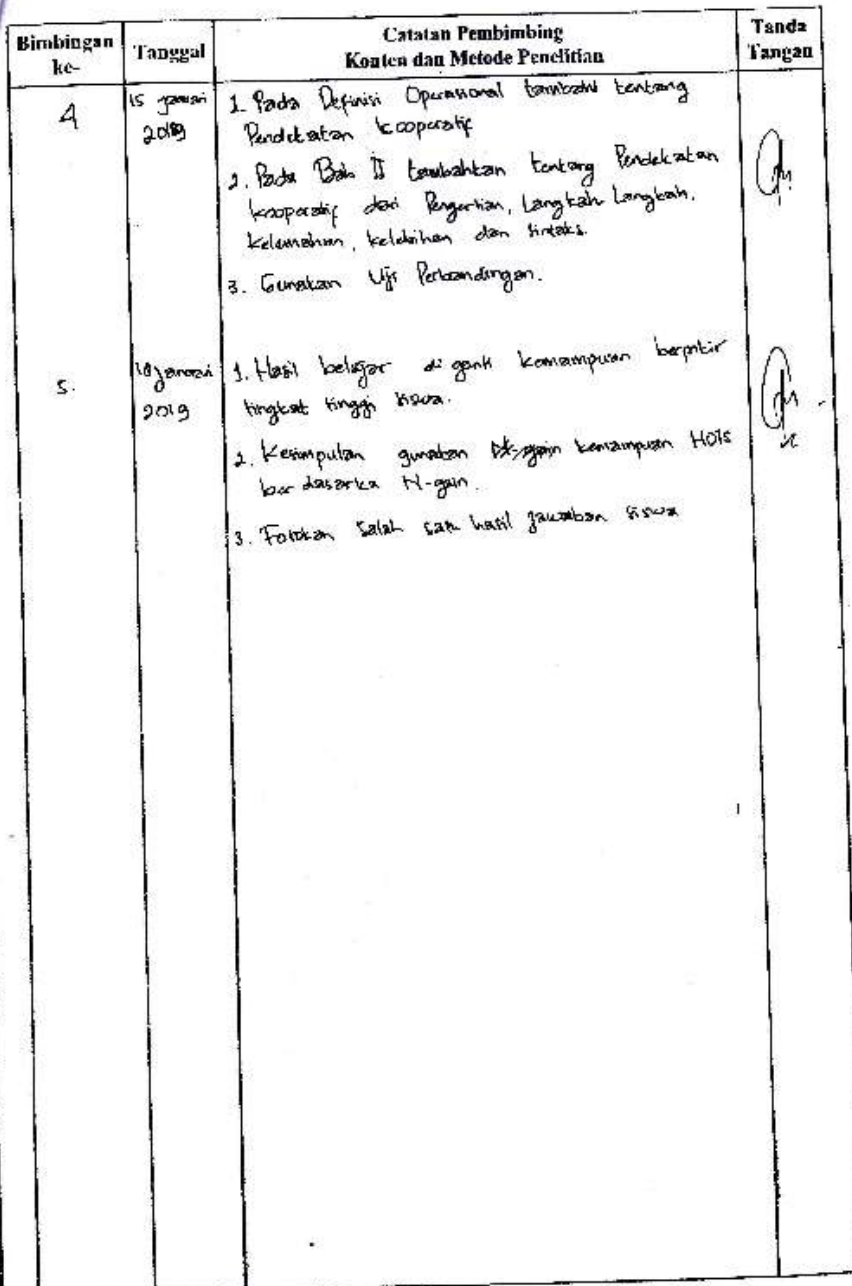 Bimbingan ke-
Tanggal
Catatan Pembimbing
Konten dan Metode Penelitian
Tanda Tangan
4
15 januari 2019
1. Pada Definisi Operasional tambahi tentang
Pendekatan kooperatif
2. Pada Bab II tambahkan tentang Pendekatan
kooperatif dari Pengertian, Langkah Langkah,
Kelemahan, kelebihan dan sintaks.
3. Gunakan Uji Perbandingan.
5.
januari 2019
1. Hasil belajar di ganti kemampuan berpikir
tingkat tinggi siswa.
2. Kesimpulan gunakan kemampuan HOTS
ber dasarka N-gain.
3. Fotokan Salah satu hasil jawaban siswa